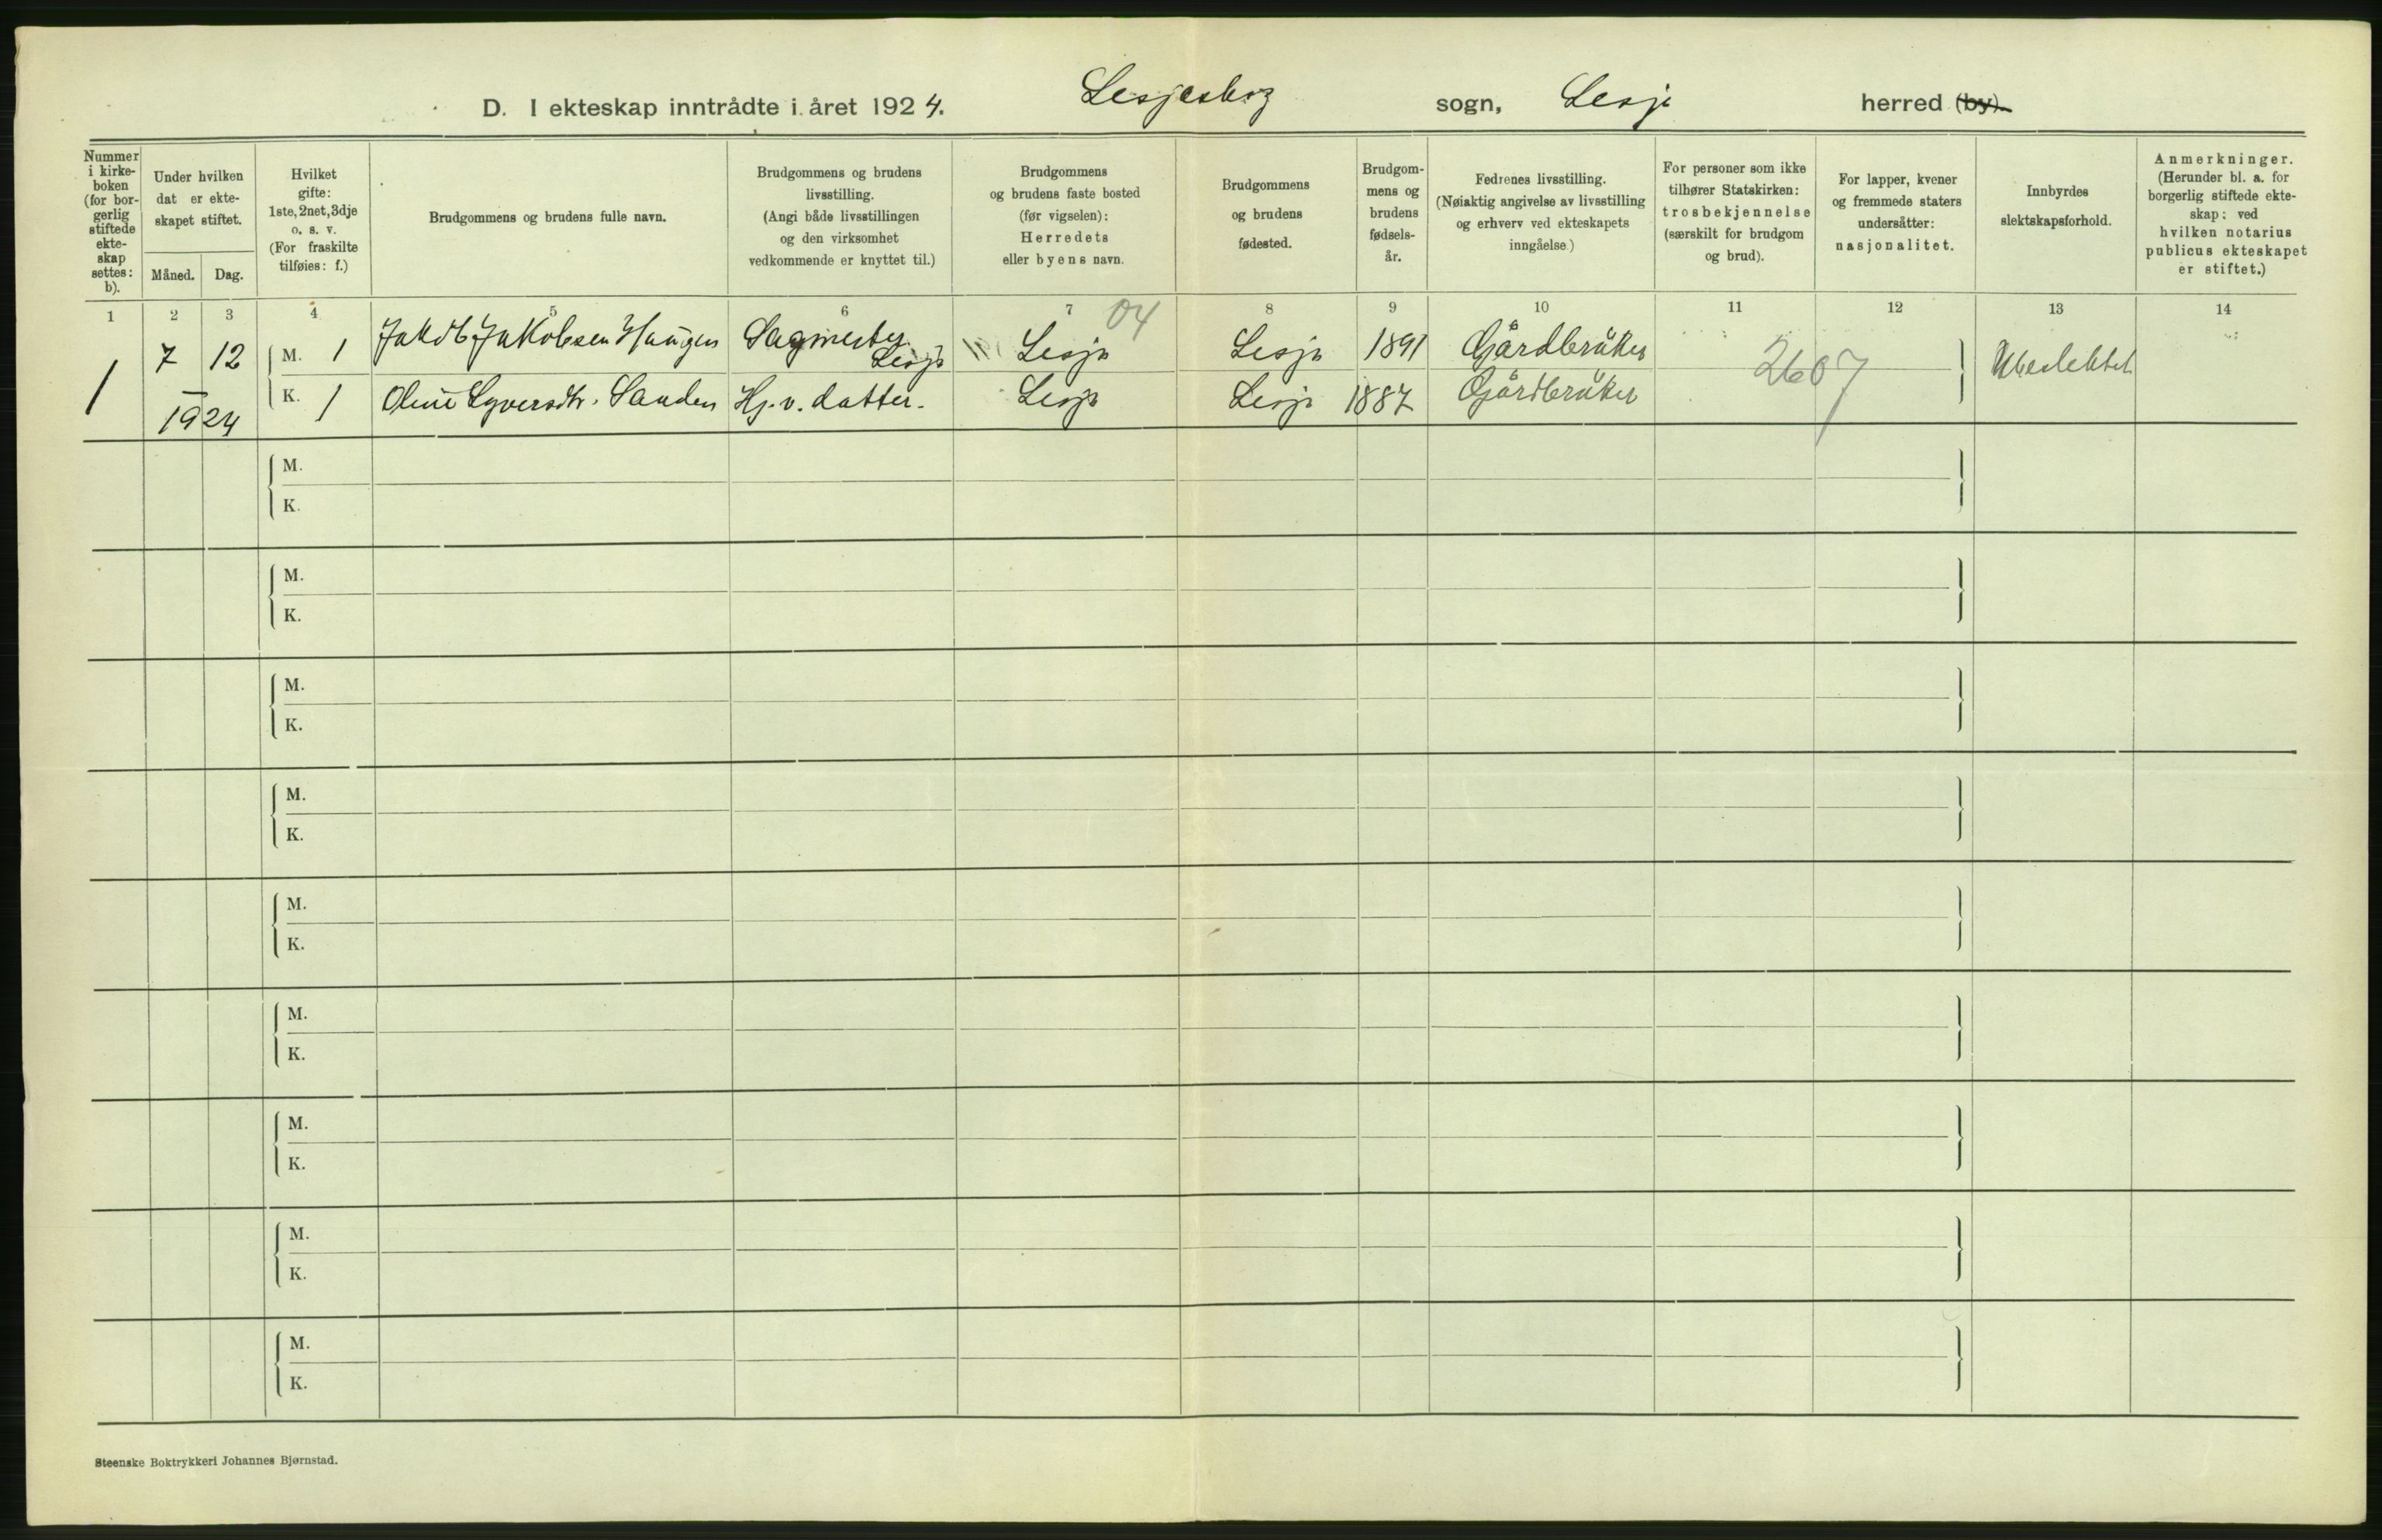 D. I ekteskap inntrådte i året 1924. Lesjaskog sogn, Lesja herred (by).
Nummer i kirke-boken (for bor-gerlig stiftede ekte-skap settes: b).
Under hvilken dat er ekte-skapet stiftet.
Måned. Dag.
Hvilket gifte: 1ste, 2net, 3dje o. s. v. (For fraskilte tilføies: f.)
Brudgommens og brudens fulle navn.
Brudgommens og brudens livsstilling. (Angi både livsstillingen og den virksomhet vedkommende er knyttet til.)
Brudgommens og brudens faste bosted (før vigselen): Herredets eller byens navn.
Brudgommens og brudens fødested.
Brudgom-mens og brudens fødsels-år.
Fedrenes livsstilling. (Nøiaktig angivelse av livsstilling og erhverv ved ekteskapets inngåelse.)
For personer som ikke tilhører Statskirken: trosbekjennelse (særskilt for brudgom og brud).
For lapper, kvener og fremmede staters undersåtter: nasjonalitet.
Innbyrdes slektskapsforhold.
Anmerkninger. (Herunder bl. a. for borgerlig stiftede ekte-skap: ved hvilken notarius publicus ekteskapet er stiftet.)
1 2 3 4 5 6 7 8 9 10 11 12 13 14
04
1 7 12 M. 1 Jakob Jakobsen Haugen Sagmester Lesja Lesja Lesja 1891 Gårdbruker 2607 Ubeslektet
1924 K. 1 Oline Syversdtr. Sanden Hj. v. datter. Lesja Lesja 1887 Gårdbruker
M.
K.
M.
K.
M.
K.
M.
K.
M.
K.
M.
K.
M.
K.
M.
K.
M.
K.
Steenske Boktrykkeri Johannes Bjørnstad.